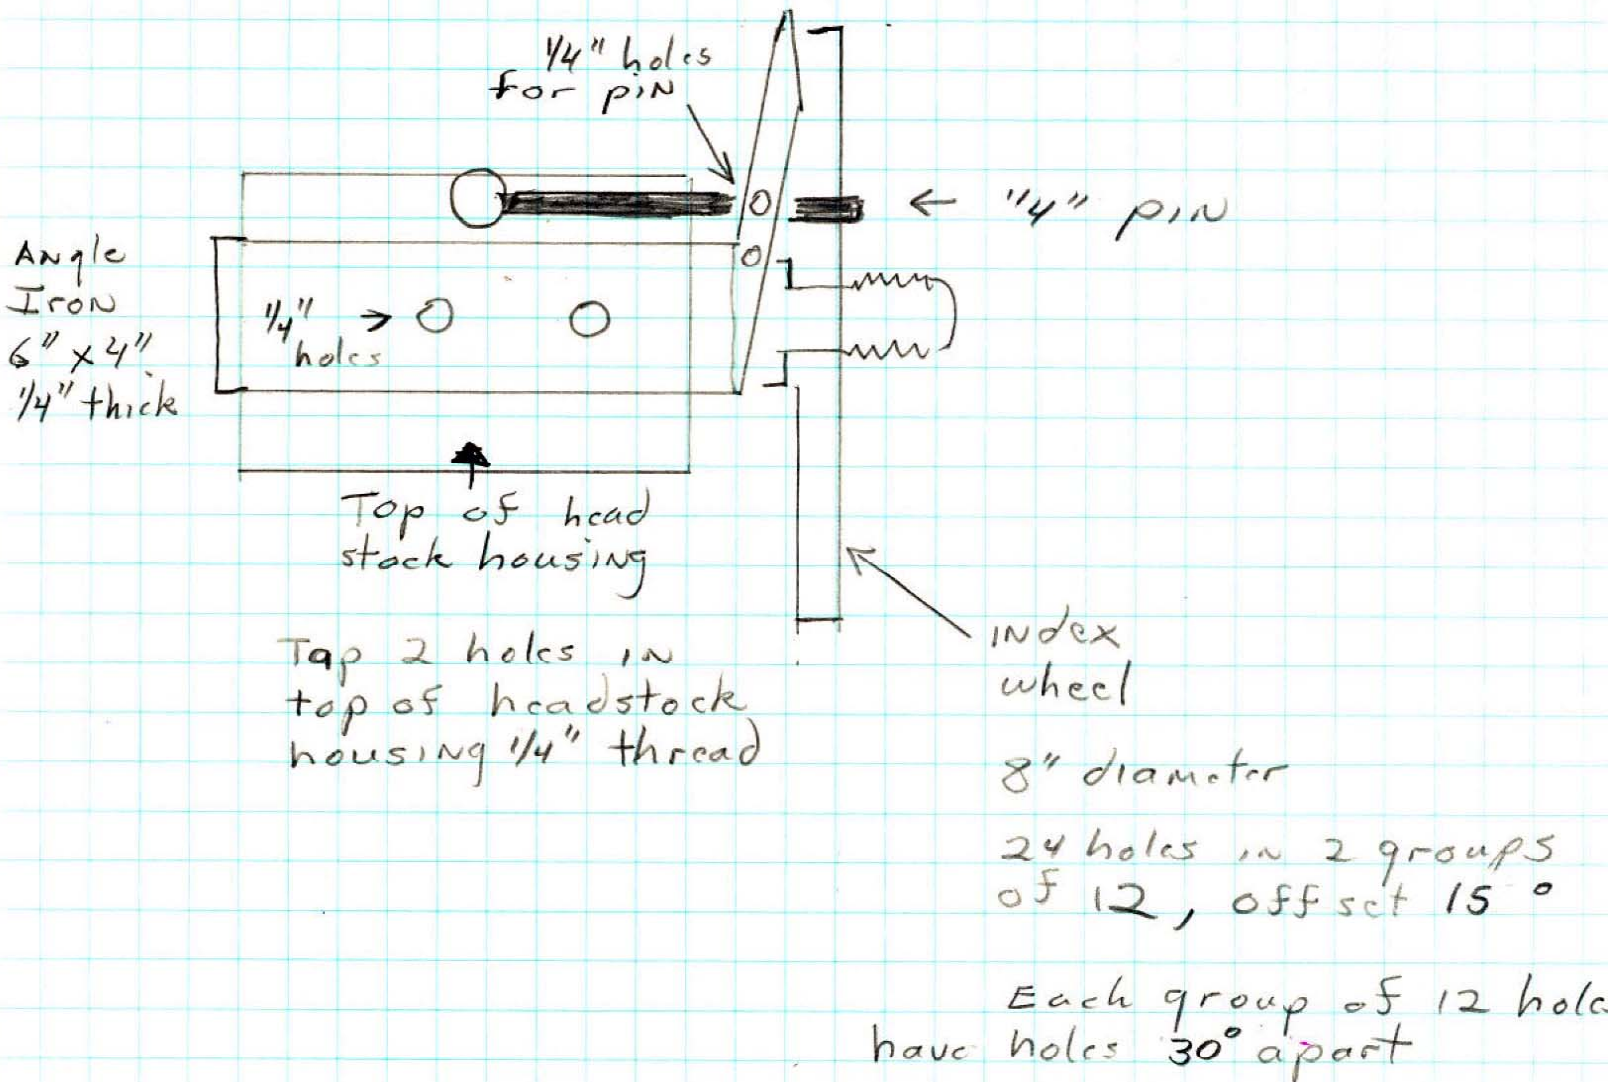 1/4" holes
for pin
← 1/4" pin
Angle
Iron
6" x 4"
1/4" thick
1/4" →
holes
Top of head
stock housing
Tap 2 holes in
top of headstock
housing 1/4" thread
index
wheel
8" diameter
24 holes in 2 groups
of 12, offset 15°
Each group of 12 hole
have holes 30° apart